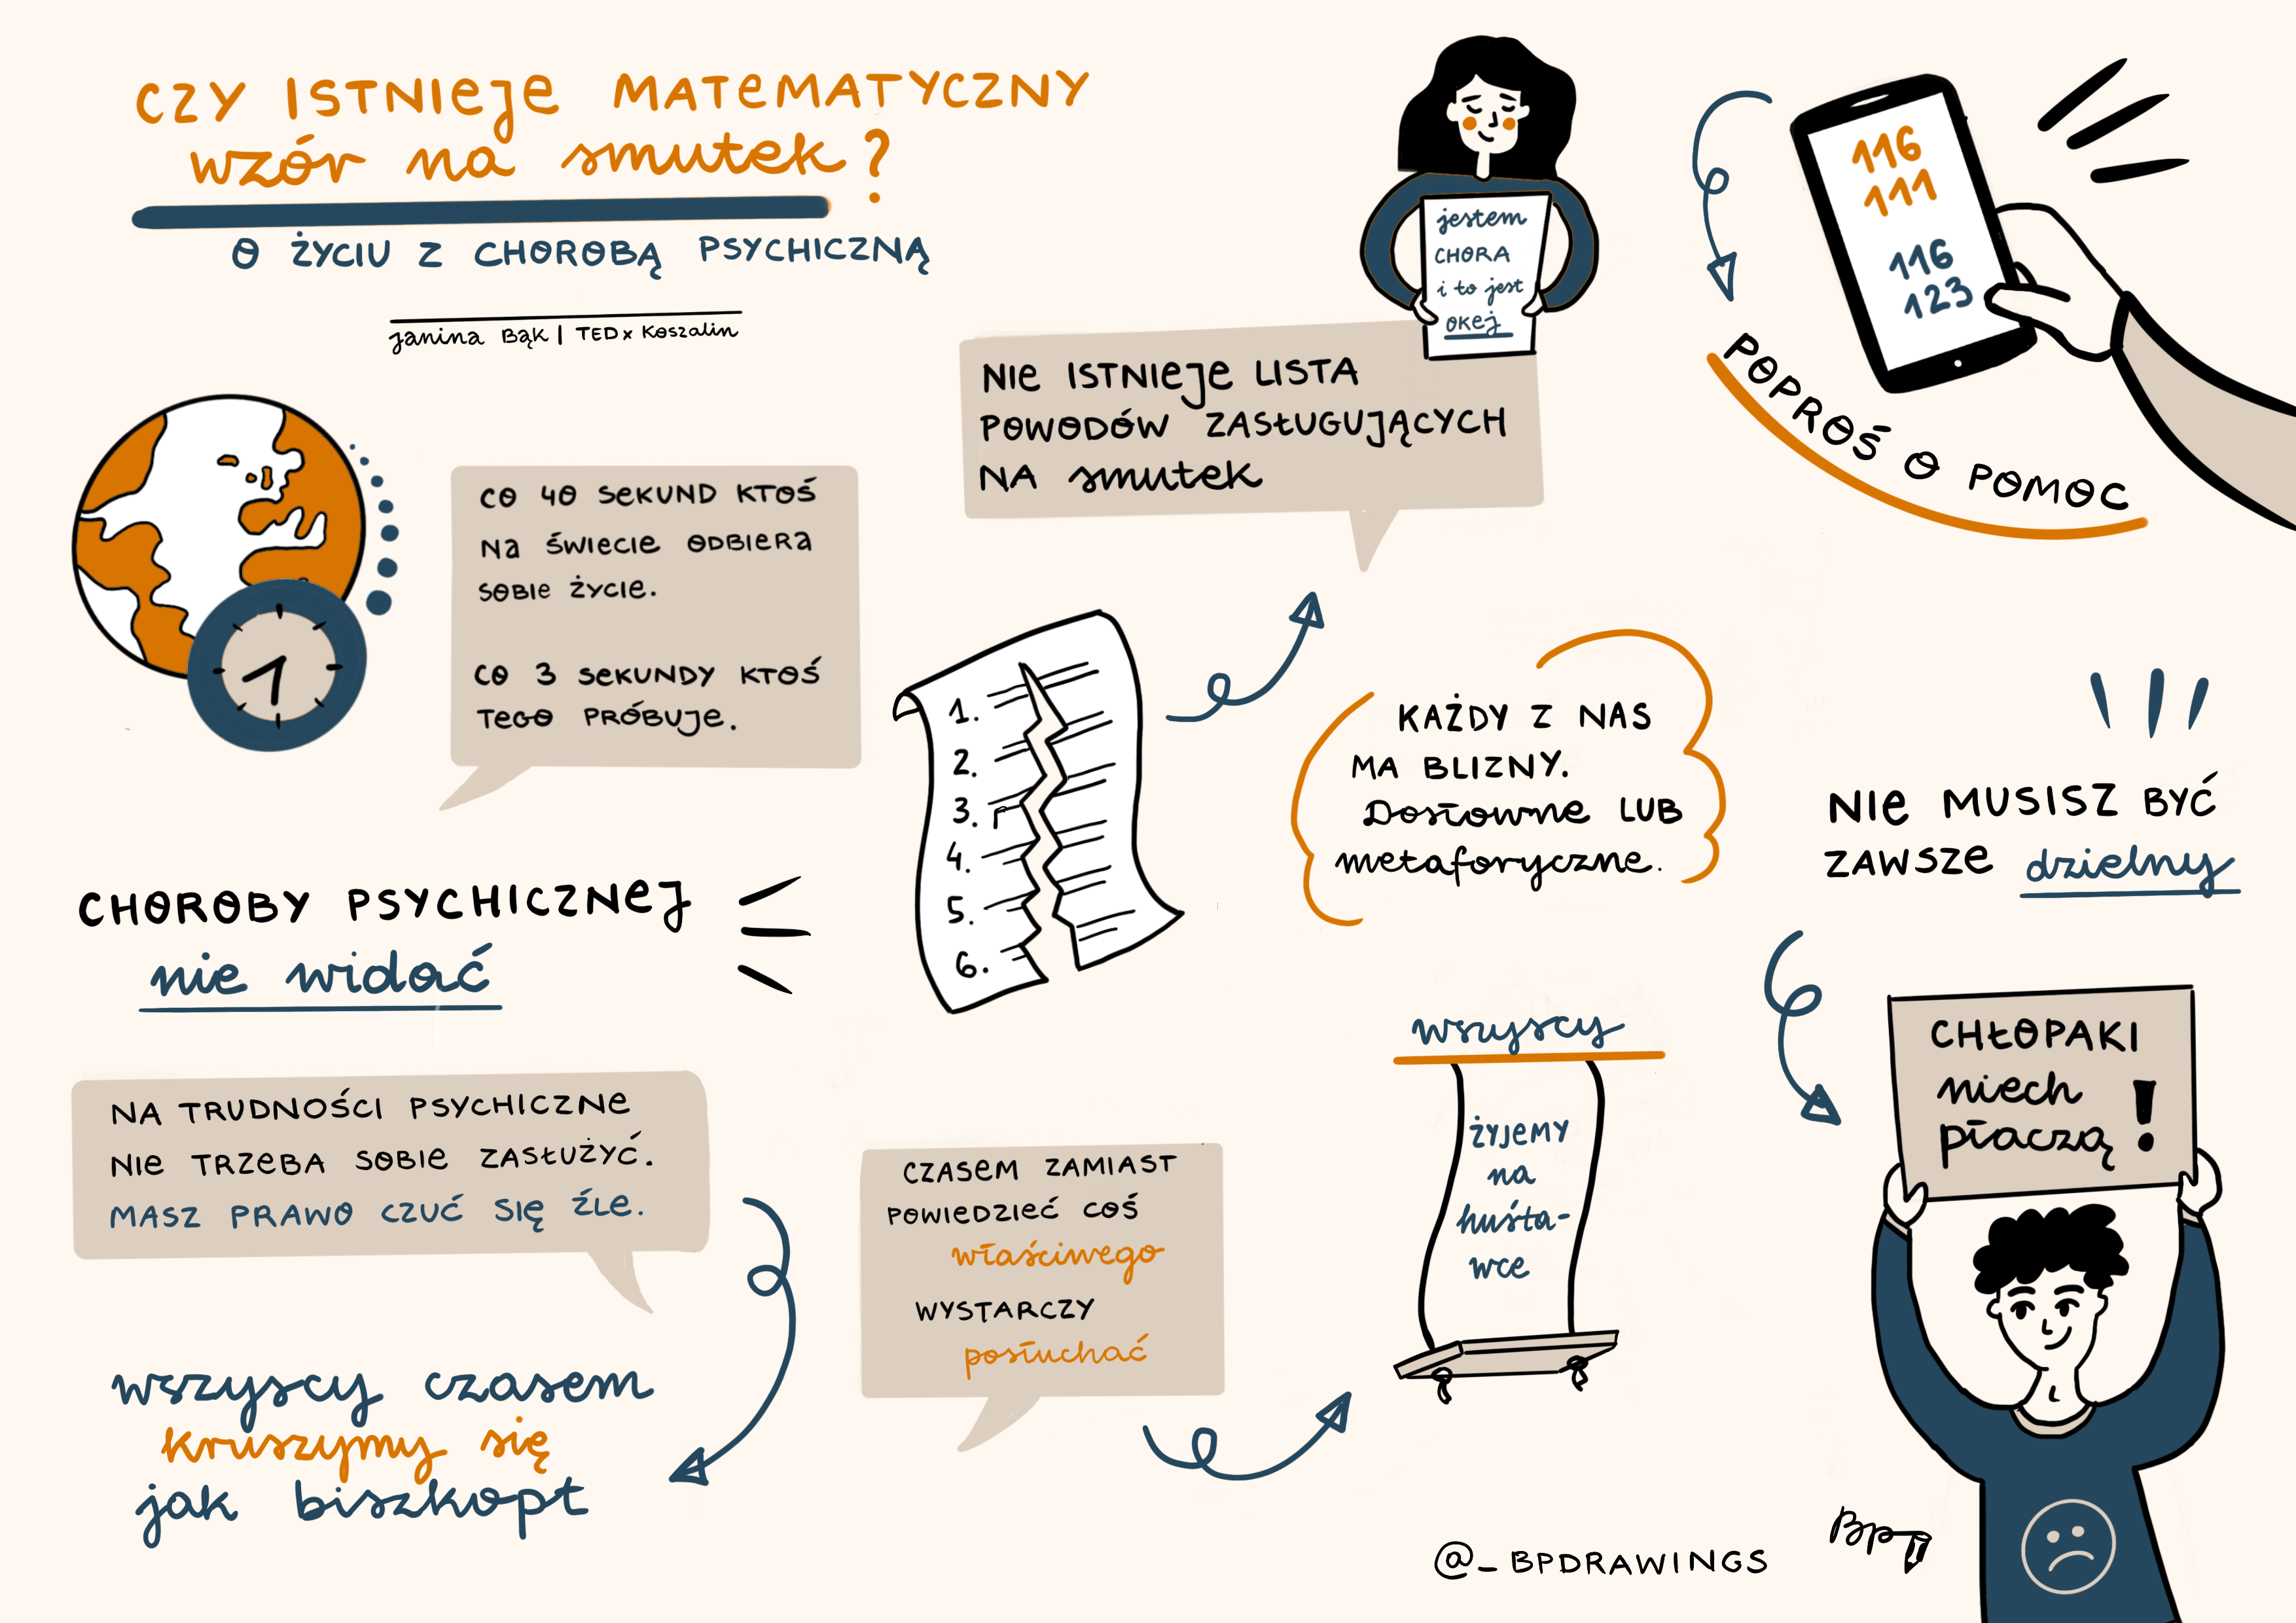 CZY ISTNIEJE MATEMATYCZNY
wzór na smutek?
O ŻYCIU Z CHOROBĄ PSYCHICZNĄ
Janina Bąk | TEDx Koszalin
CO 40 SEKUND KTOŚ
NA ŚWIECIE ODBIERA
SOBIE ŻYCIE.
CO 3 SEKUNDY KTOŚ
TEGO PRÓBUJE.
CHOROBY PSYCHICZNEJ
nie widać
NA TRUDNOŚCI PSYCHICZNE
NIE TRZEBA SOBIE ZASŁUŻYĆ.
MASZ PRAWO CZUĆ SIĘ ŹLE.
wszyscy czasem
kruszymy się
jak biszkopt
1.
2.
3.
4.
5.
6.
NIE ISTNIEJE LISTA
POWODÓW ZASŁUGUJĄCYCH
NA smutek
jestem
CHORA
i to jest
OKEJ
CZASEM ZAMIAST
POWIEDZIEĆ COŚ
właściwego
WYSTARCZY
posłuchać
wszyscy
ŻYJEMY
na
huśta-
wce
KAŻDY Z NAS
MA BLIZNY.
Dosłowne LUB
metaforyczne.
116
111
116
123
POPROŚ O POMOC
NIE MUSISZ BYĆ
ZAWSZE dzielny
CHŁOPAKI
niech
płaczą!
@_BPDRAWINGS
Bp